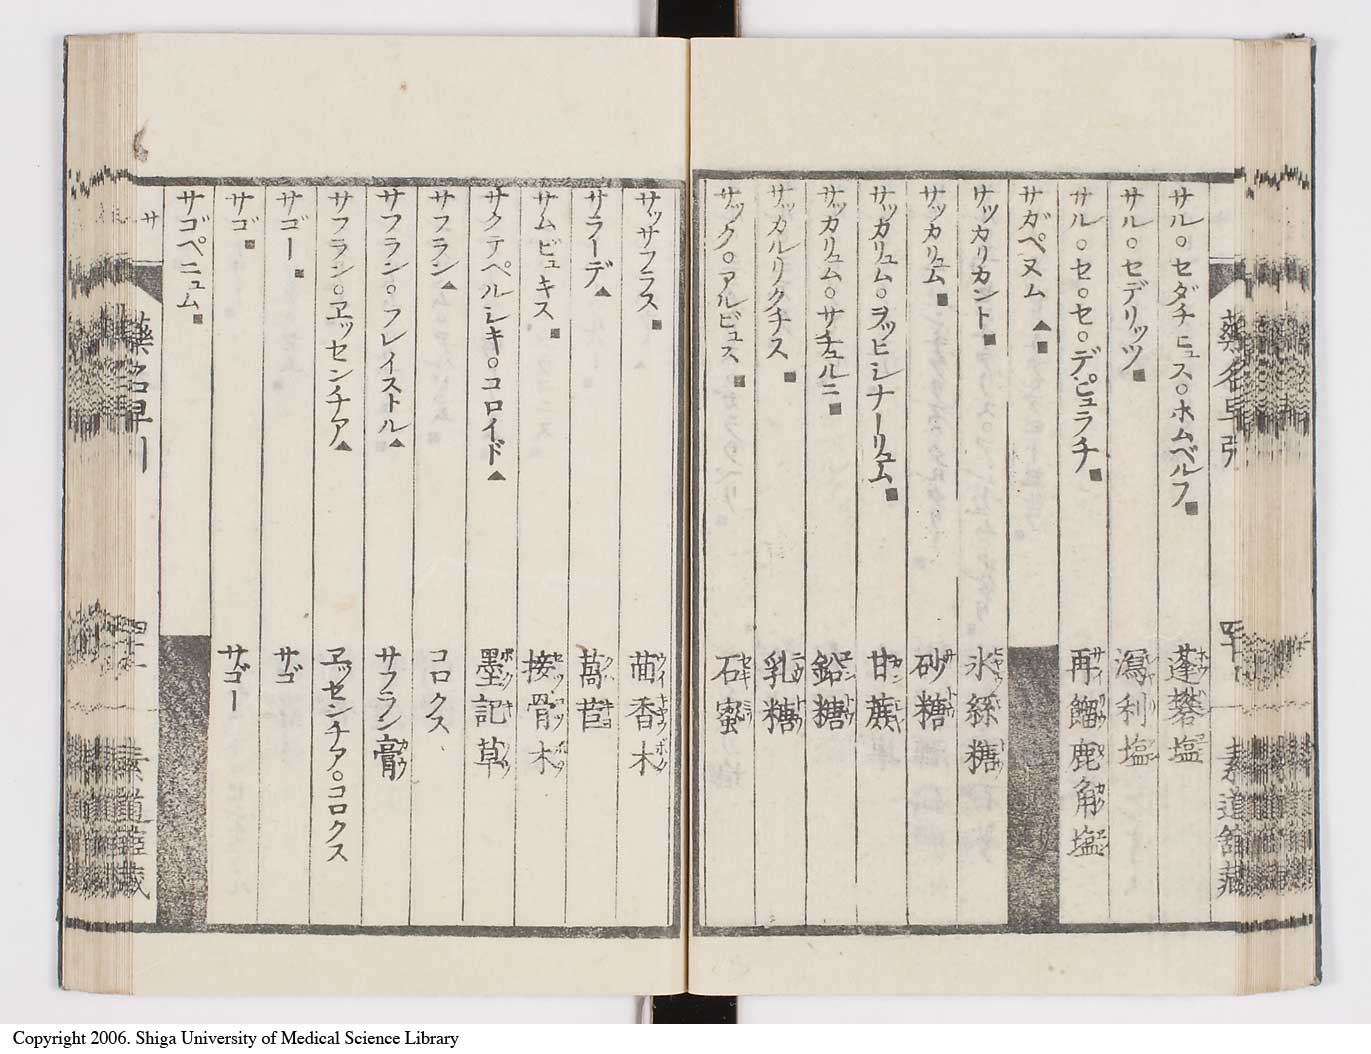 藥名早引
四十
素道舘藏
サル○セダチヒュス○ホムベルフ■ 蓬礬塩
サル○セデリッツ■ 瀉利塩
サル○セ○セ○デピュラチ■ 再餾鹿角塩
サガペヌム▲■
サッカリカント■ 氷絲糖
サッカリュム■ 砂糖
サッカリュム○ヲッヒシナーリュム■ 甘蔗
サッカリュム○サチュルニ■ 鉛糖
サッカルリクチス■ 乳糖
サックロアルビュス■ 石蜜
サッサフラス■ 茴香木
サラーデ▲ 萵苣
サムビュキス■ 接骨木
サクテペルレキ○コロイド▲ 墨記草
サフラン▲ コロクス
サフラン○フレイストル▲ サフラン膏
サフラン○ヱッセンチア▲ ヱッセンチア○コロクス
サゴー■ サゴ
サゴ■ サゴー
サゴペニュム■
サ
藥名早引
四十一
Copyright 2006. Shiga University of Medical Science Library